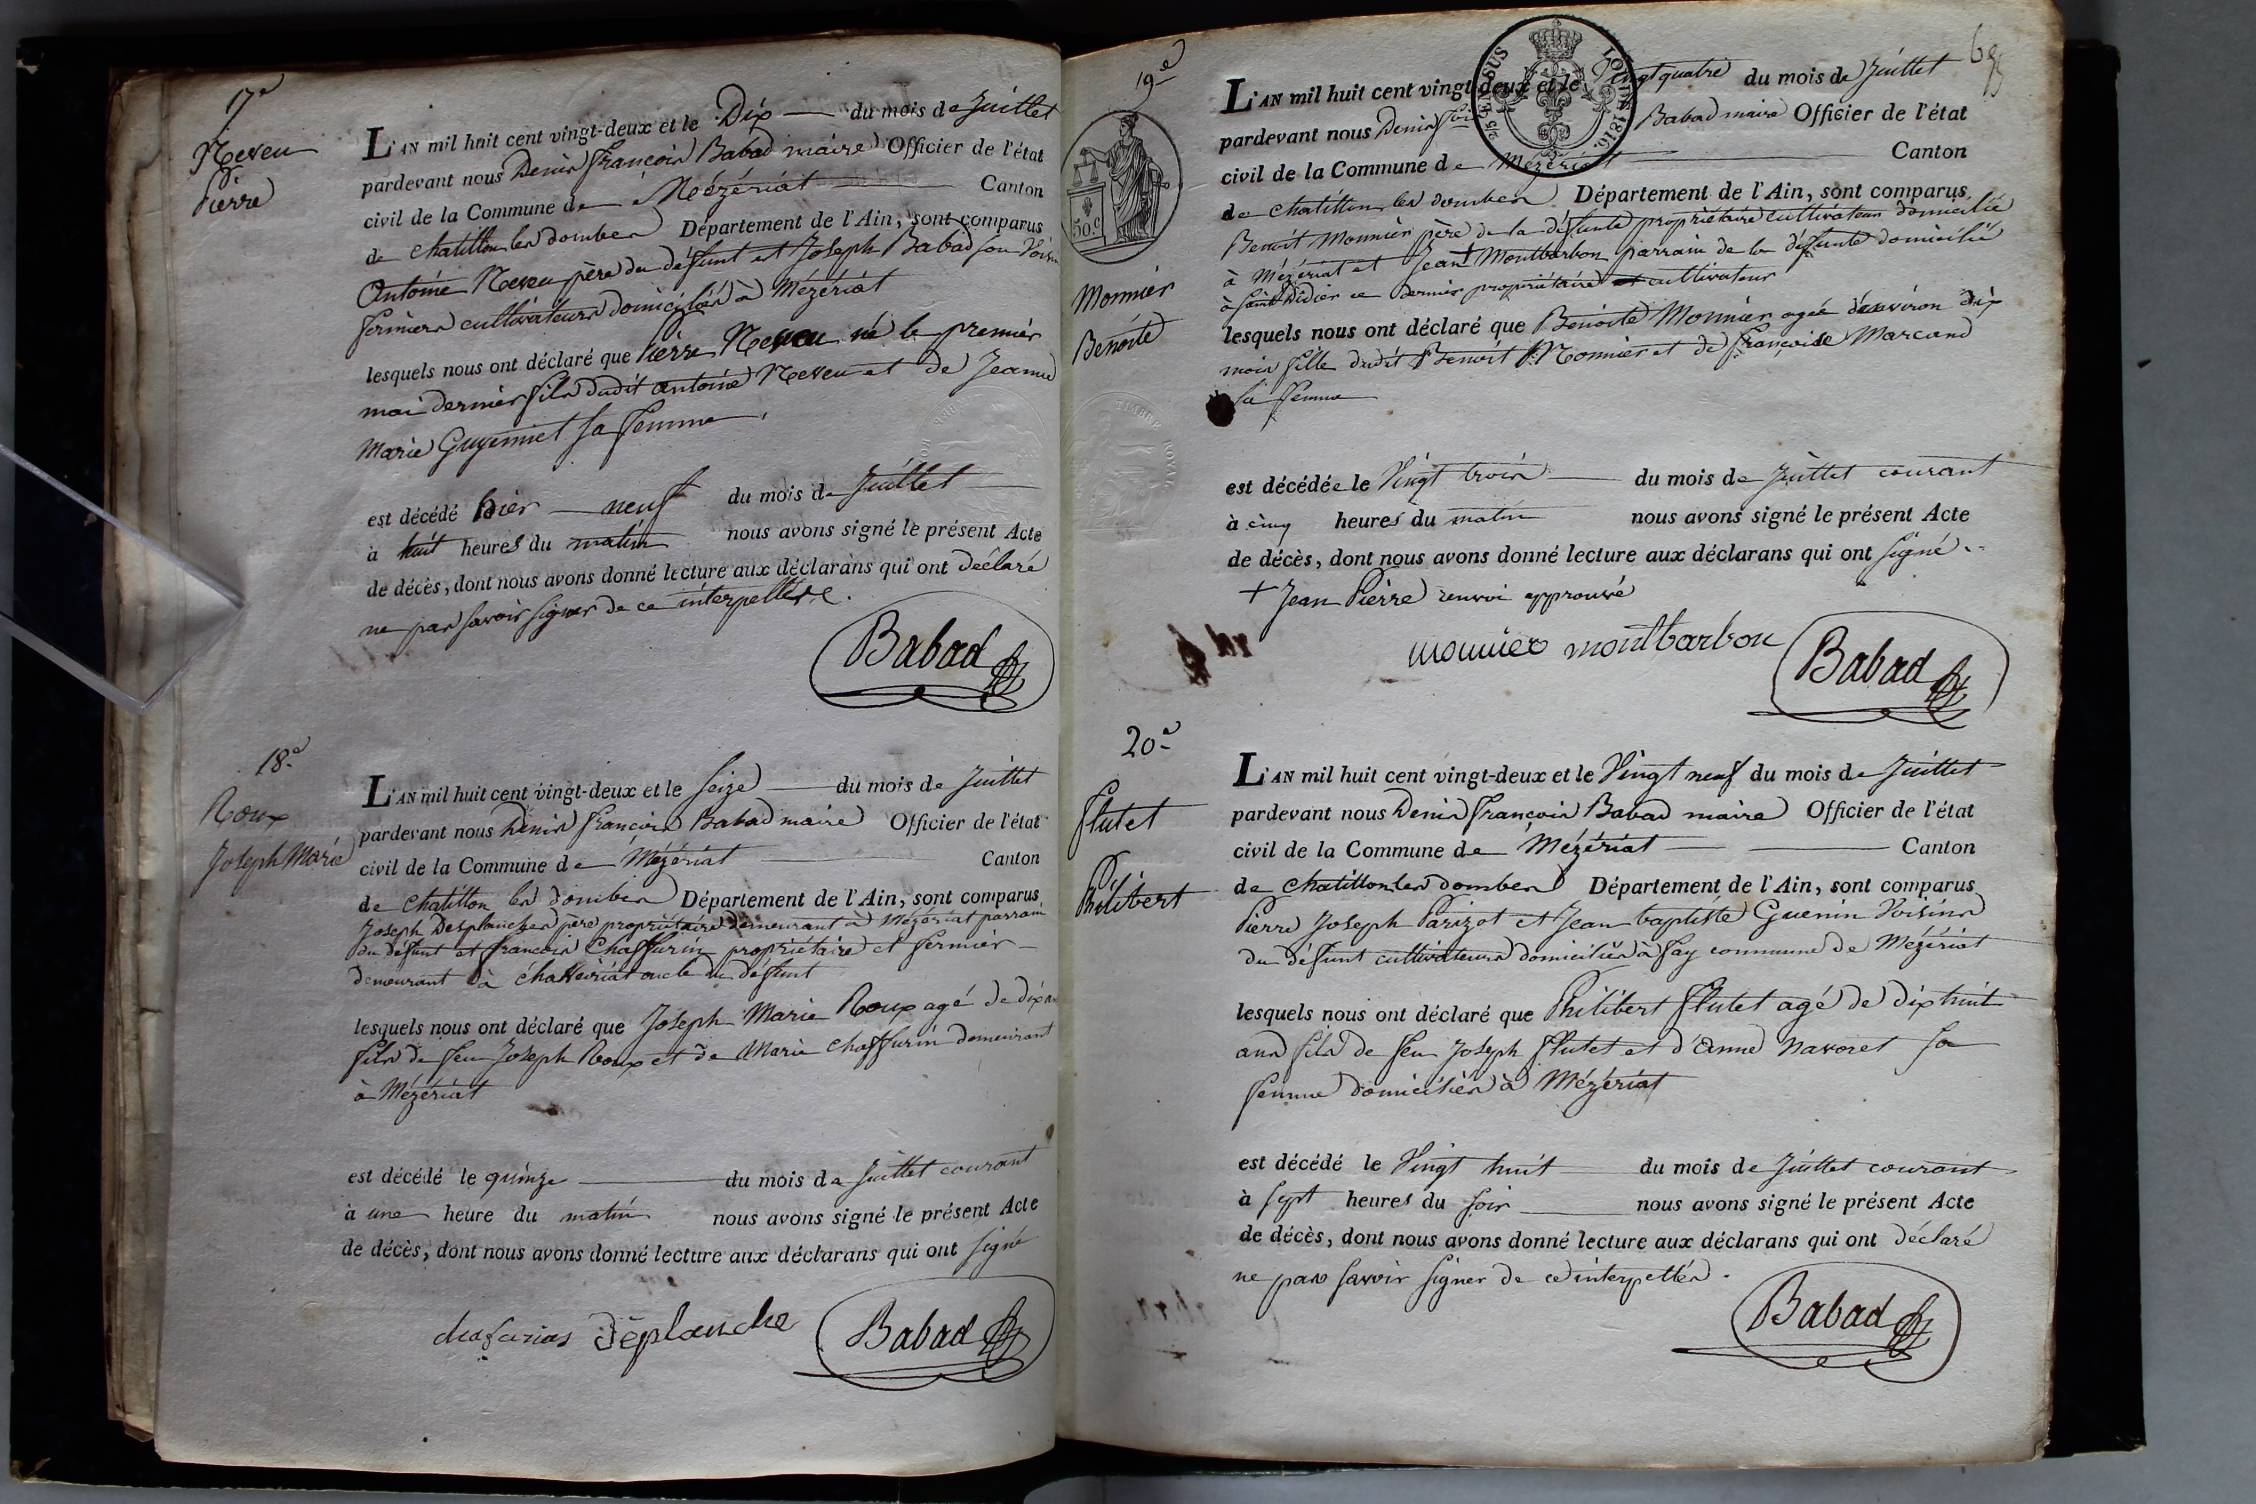 17e
Neveu
Pierre
L'AN mil huit cent vingt-deux et le Dix du mois de Juillet
pardevant nous Denis françois Babad maire Officier de l'état
civil de la Commune de Mézériat Canton
de Chatillon les dombes Département de l'Ain, sont comparus
Antoine Neveu père du défunt et Joseph Babad son Voisin
fermiers cultivateurs domiciliés à Mézériat
lesquels nous ont déclaré que Pierre Neveu né le premier
mai dernier fils dudit antoine Neveu et de Jeanne
Marie Guyennet sa femme.
est décédé hier neuf du mois de Juillet
à huit heures du matin nous avons signé le présent Acte
de décès, dont nous avons donné lecture aux déclarans qui ont déclaré
ne pas savoir signer de ce interpellés.
Babad
18e
Roux
Joseph Marie
L'AN mil huit cent vingt-deux et le Seize du mois de Juillet
pardevant nous Denis françois Babad maire Officier de l'état
civil de la Commune de Mézériat Canton
de Chatillon les dombes Département de l'Ain, sont comparus
Joseph Desplanches père propriétaire demeurant à Mézériat parrain
du défunt et francois Chaffurin propriétaire et fermier
demeurant à chaveiriat oncle du défunt
lesquels nous ont déclaré que Joseph Marie Roux agé de dix ans
fils de feu Joseph Roux et de Marie Chaffurin demeurant
à Mézériat
est décédé le quinze du mois de Juillet courant
à une heure du matin nous avons signé le présent Acte
de décès, dont nous avons donné lecture aux déclarans qui ont signé
Déplanche Babad
19e
Monnier
Benoite
50.c
TIMBRE ROYAL
LOUIS 1816.
L'AN mil huit cent vingt-deux et le Vingt quatre du mois de Juillet
pardevant nous Denis fois Babad maire Officier de l'état
civil de la Commune de Mézériat Canton
de Chatillon les dombes Département de l'Ain, sont comparus
Benoit Monnier père de la défunte propriétaire cultivateur domicilié
à Mézériat et Jean + Montbarbon parrain de la défunte domicilié
à Saint Didier ce dernier propriétaire et cultivateur
lesquels nous ont déclaré que Benoite Monnier agée d'environ dix
mois fille dudit Benoit Monnier et de françoise Marcand
sa femme
est décédée le Vingt trois du mois de Juillet courant
à cinq heures du matin nous avons signé le présent Acte
de décès, dont nous avons donné lecture aux déclarans qui ont signé.
+ Jean Pierre renvoi approuvé
monnier montbarbon Babad
20e
Flutet
Philibert
L'AN mil huit cent vingt-deux et le Vingt neuf du mois de Juillet
pardevant nous Denis françois Babad maire Officier de l'état
civil de la Commune de Mézériat Canton
de Chatillon les dombes Département de l'Ain, sont comparus
Pierre Joseph Parizot et Jean baptiste Guenin Voisins
du défunt cultivateurs domiciliés à fay commune de Mézériat
lesquels nous ont déclaré que Philibert Flutet agé de dixhuit
ans fils de feu Joseph Flutet et d'Anne Navoret sa
femme domiciliés à Mézériat
est décédé le Vingt huit du mois de Juillet courant
à sept heures du soir nous avons signé le présent Acte
de décès, dont nous avons donné lecture aux déclarans qui ont déclaré
ne pas savoir signer de ce interpellés.
Babad